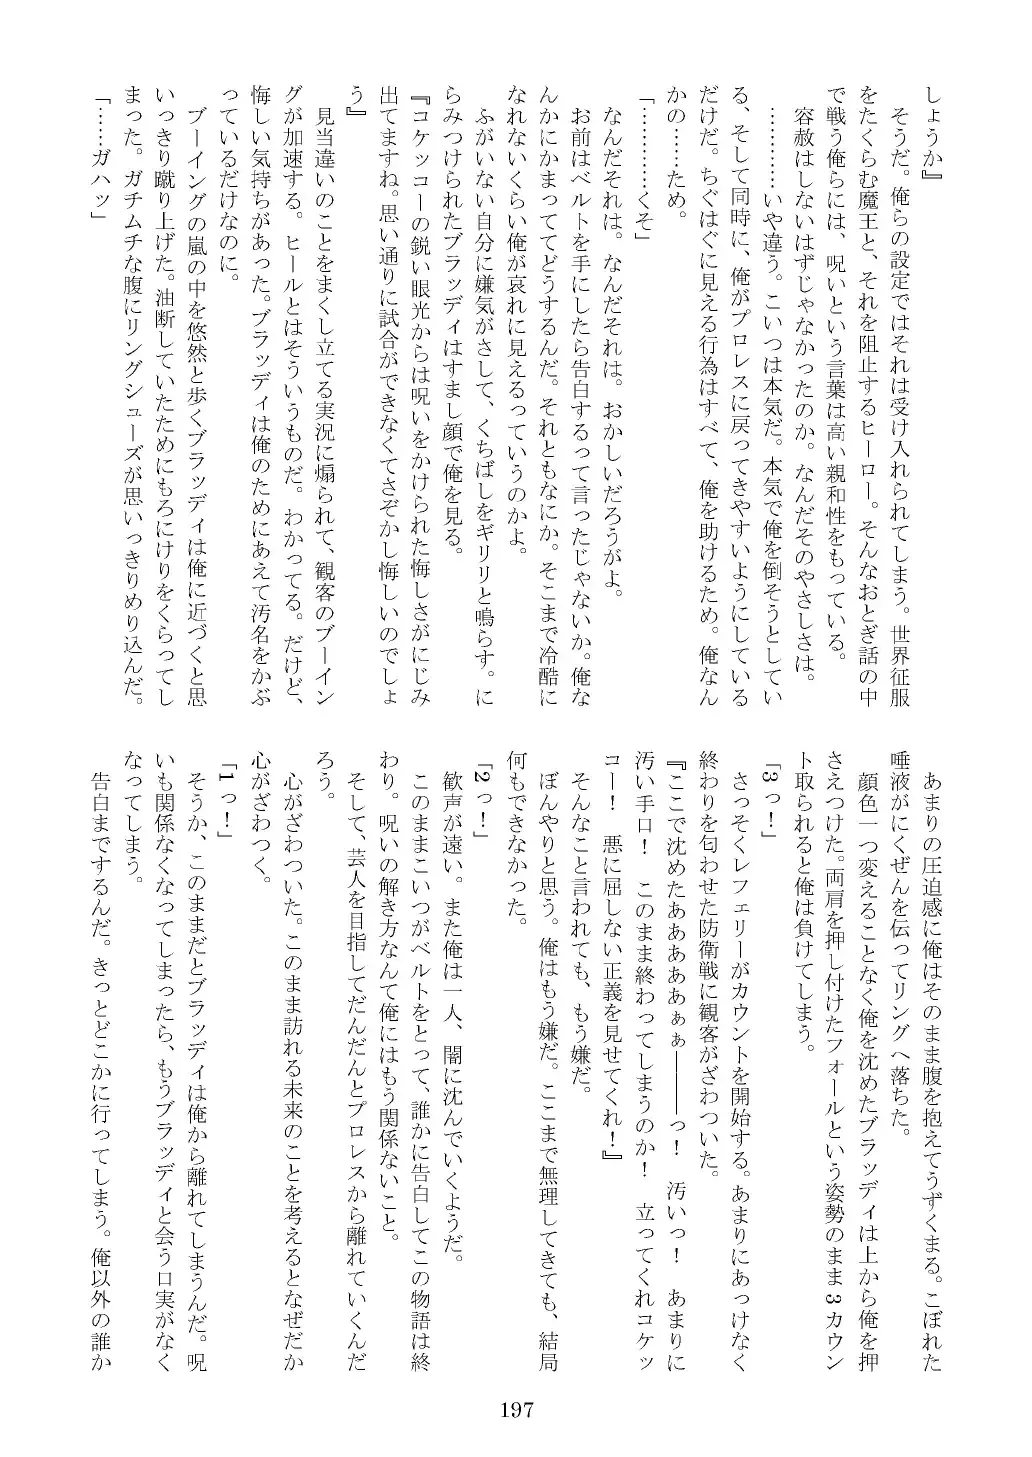 しょうか』
　そうだ。俺らの設定ではそれは受け入れられてしまう。世界征服
をたくらむ魔王と、それを阻止するヒーロー。そんなおとぎ話の中
で戦う俺らには、呪いという言葉は高い親和性をもっている。
　容赦はしないはずじゃなかったのか。なんだそのやさしさは。
　…………いや違う。こいつは本気だ。本気で俺を倒そうとしてい
る、そして同時に、俺がプロレスに戻ってきやすいようにしている
だけだ。ちぐはぐに見える行為はすべて、俺を助けるため。俺なん
かの……ため。
「…………くそ」
　なんだそれは。なんだそれは。おかしいだろうがよ。
　お前はベルトを手にしたら告白するって言ったじゃないか。俺な
んかにかまっててどうするんだ。それともなにか。そこまで冷酷に
なれないくらい俺が哀れに見えるっていうのかよ。
　ふがいない自分に嫌気がさして、くちばしをギリリと鳴らす。に
らみつけられたブラッディはすまし顔で俺を見る。
『コケッコーの鋭い眼光からは呪いをかけられた悔しさがにじみ
出てますね。思い通りに試合ができなくてさぞかし悔しいのでしょ
う』
　見当違いのことをまくし立てる実況に煽られて、観客のブーイン
グが加速する。ヒールとはそういうものだ。わかってる。だけど、
悔しい気持ちがあった。ブラッディは俺のためにあえて汚名をかぶ
っているだけなのに。
　ブーイングの嵐の中を悠然と歩くブラッディは俺に近づくと思
いっきり蹴り上げた。油断していたためにもろにけりをくらってし
まった。ガチムチな腹にリングシューズが思いっきりめり込んだ。
「……ガハッ」
　あまりの圧迫感に俺はそのまま腹を抱えてうずくまる。こぼれた
唾液がにくぜんを伝ってリングへ落ちた。
　顔色一つ変えることなく俺を沈めたブラッディは上から俺を押
さえつけた。両肩を押し付けたフォールという姿勢のまま3カウン
ト取られると俺は負けてしまう。
「3っ！」
　さっそくレフェリーがカウントを開始する。あまりにあっけなく
終わりを匂わせた防衛戦に観客がざわついた。
『ここで沈めたああああぁぁ――――っ！　汚いっ！　あまりに
汚い手口！　このまま終わってしまうのか！　立ってくれコケッ
コー！　悪に屈しない正義を見せてくれ！』
　そんなこと言われても、もう嫌だ。
　ぼんやりと思う。俺はもう嫌だ。ここまで無理してきても、結局
何もできなかった。
「2っ！」
　歓声が遠い。また俺は一人、闇に沈んでいくようだ。
　このままこいつがベルトをとって、誰かに告白してこの物語は終
わり。呪いの解き方なんて俺にはもう関係ないこと。
　そして、芸人を目指してだんだんとプロレスから離れていくんだ
ろう。
　心がざわついた。このまま訪れる未来のことを考えるとなぜだか
心がざわつく。
「1っ！」
　そうか、このままだとブラッディは俺から離れてしまうんだ。呪
いも関係なくなってしまったら、もうブラッディと会う口実がなく
なってしまう。
　告白までするんだ。きっとどこかに行ってしまう。俺以外の誰か
197